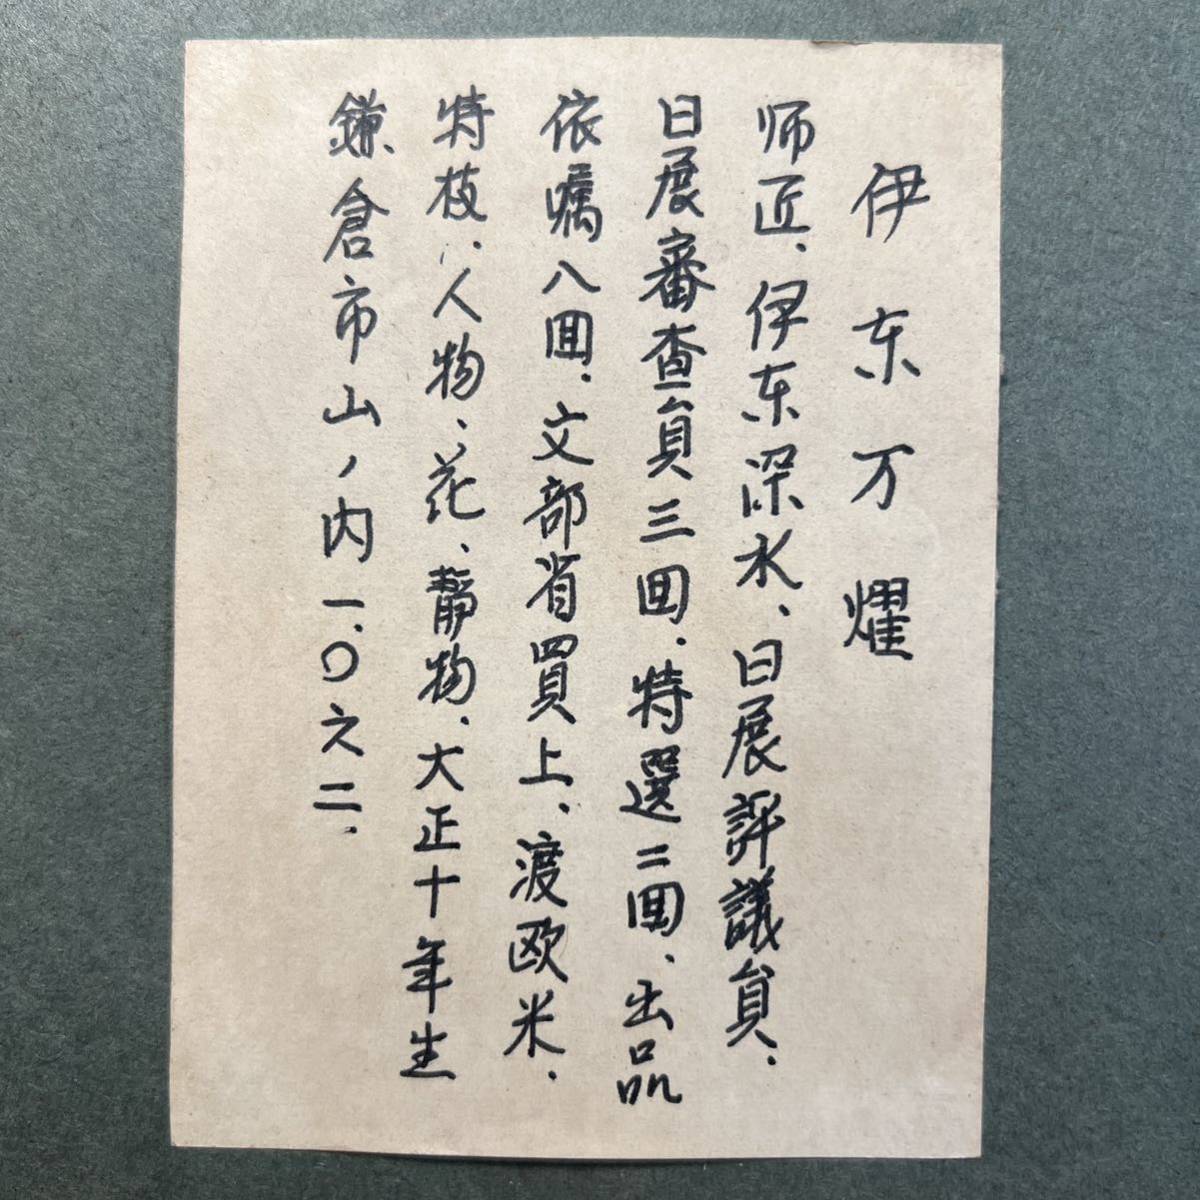 伊东万燿
师匠、伊东深水、日展評議員.
日展審査員三回.特選二回、出品
依嘱八回.文部省買上、渡欧米.
特枝、人物、花、静物.大正十年生
鎌倉市山ノ内一.〇六二.